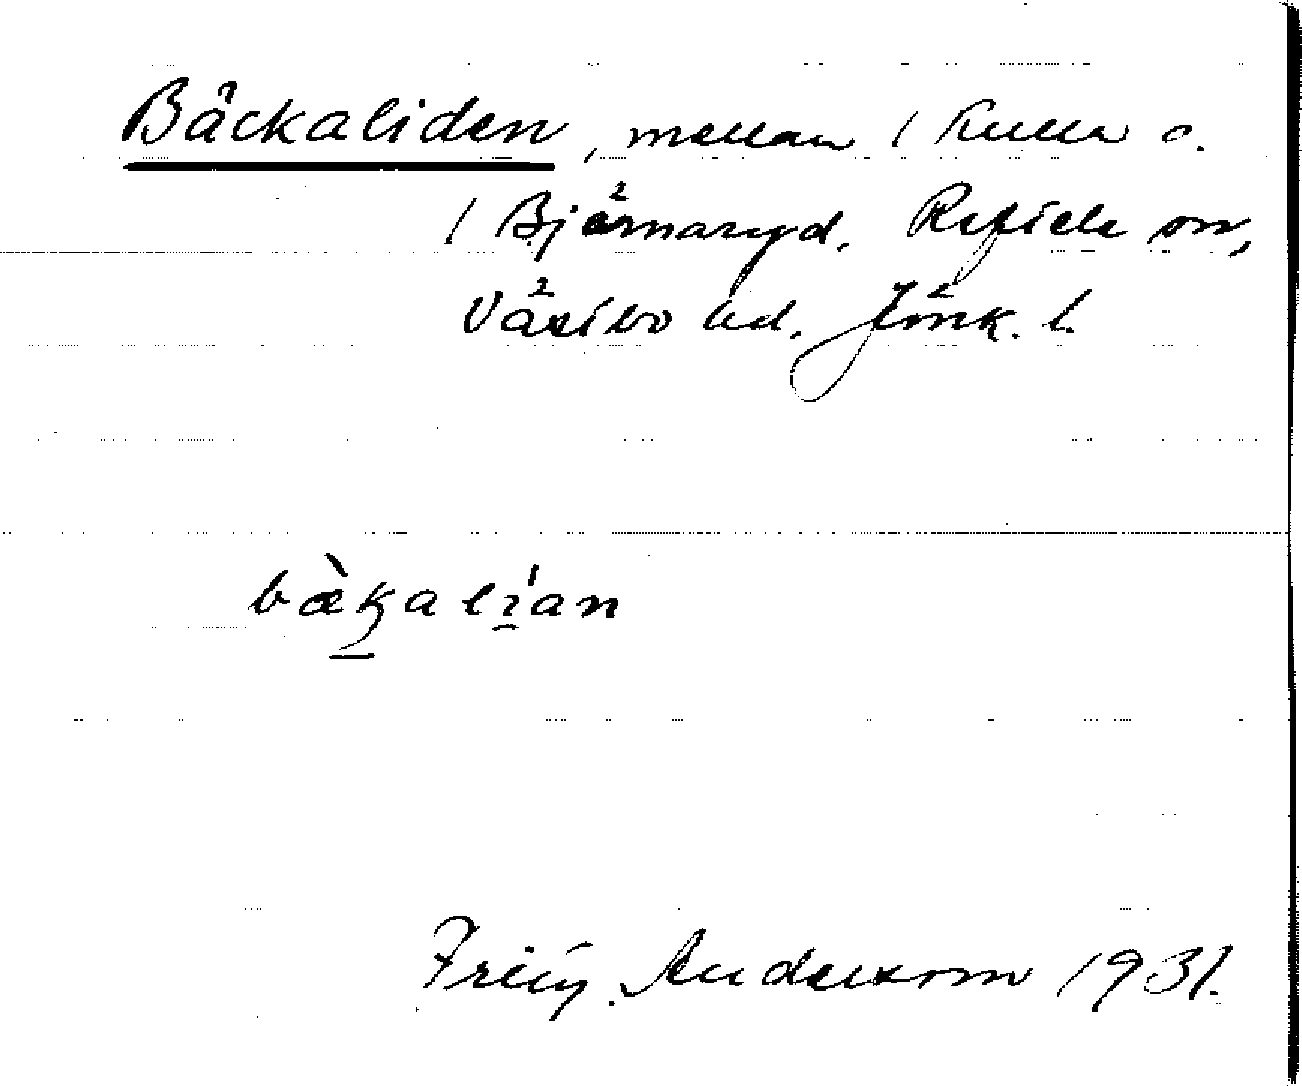 Bäckaliden, mellan / Kulla o.
/ Bjärnaryd. Reftele sn,
Västbo hd. Jönk. l.
bæ̀kalı́an
Andersson 1931.